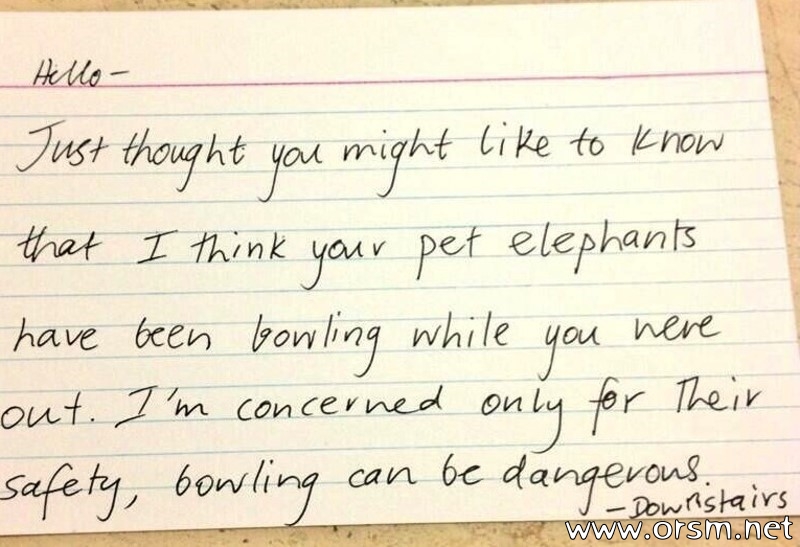 Hello -
Just thought you might like to know
that I think your pet elephants
have been bowling while you were
out. I'm concerned only for their
safety, bowling can be dangerous.
- Downstairs
www.orsm.net